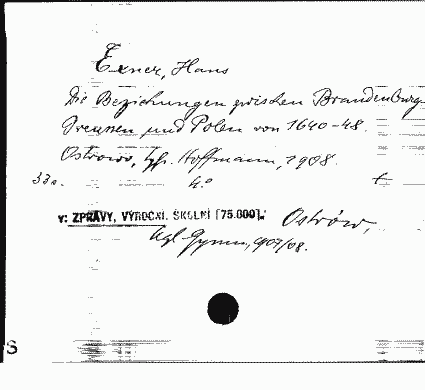 Exner, Hans
Die Beziehungen zwischen Brandenburg-
Preussen und Polen von 1640-48.
Ostrowo, Hoffmann, 1908.
33 s. 4.° +
V: ZPRÁVY, VÝROČNÍ. ŠKOLNÍ [75.000]. Ostrów,
Kgl. Gymn., 1907/08.
S